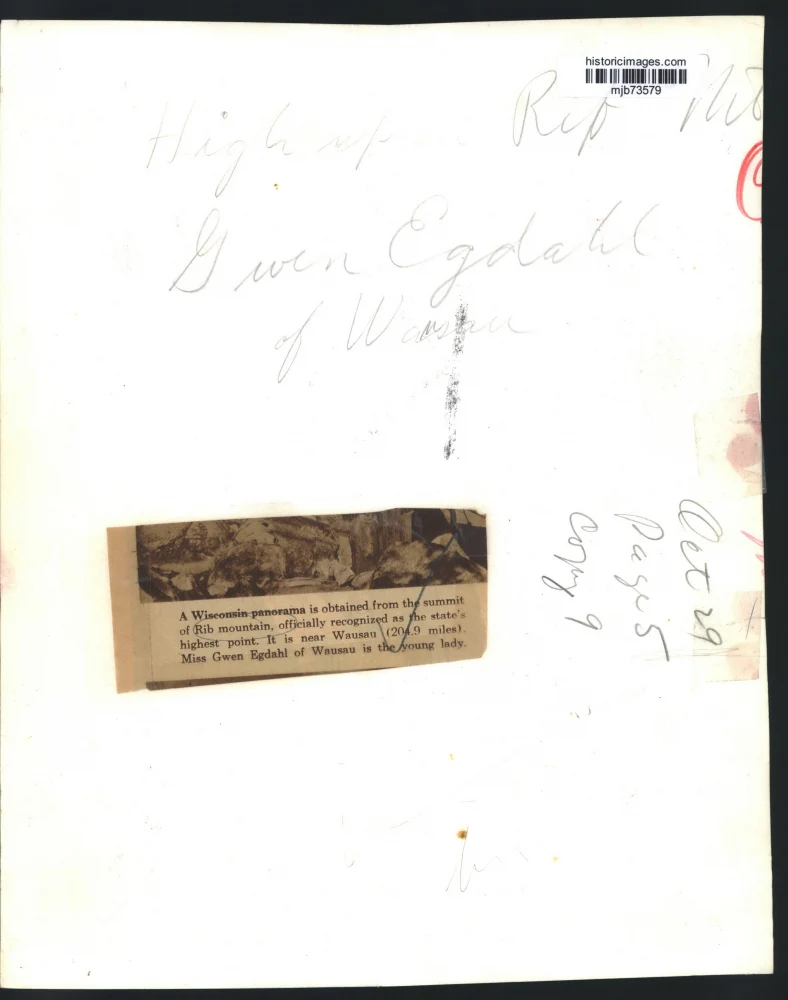 historicimages.com
mjb73579
High up Rib Mt
Gwen Egdahl
of Wausau
Oct 29
Page 5
Copy 9
A Wisconsin panorama is obtained from the summit
of Rib mountain, officially recognized as the state's
highest point. It is near Wausau (204.9 miles).
Miss Gwen Egdahl of Wausau is the young lady.